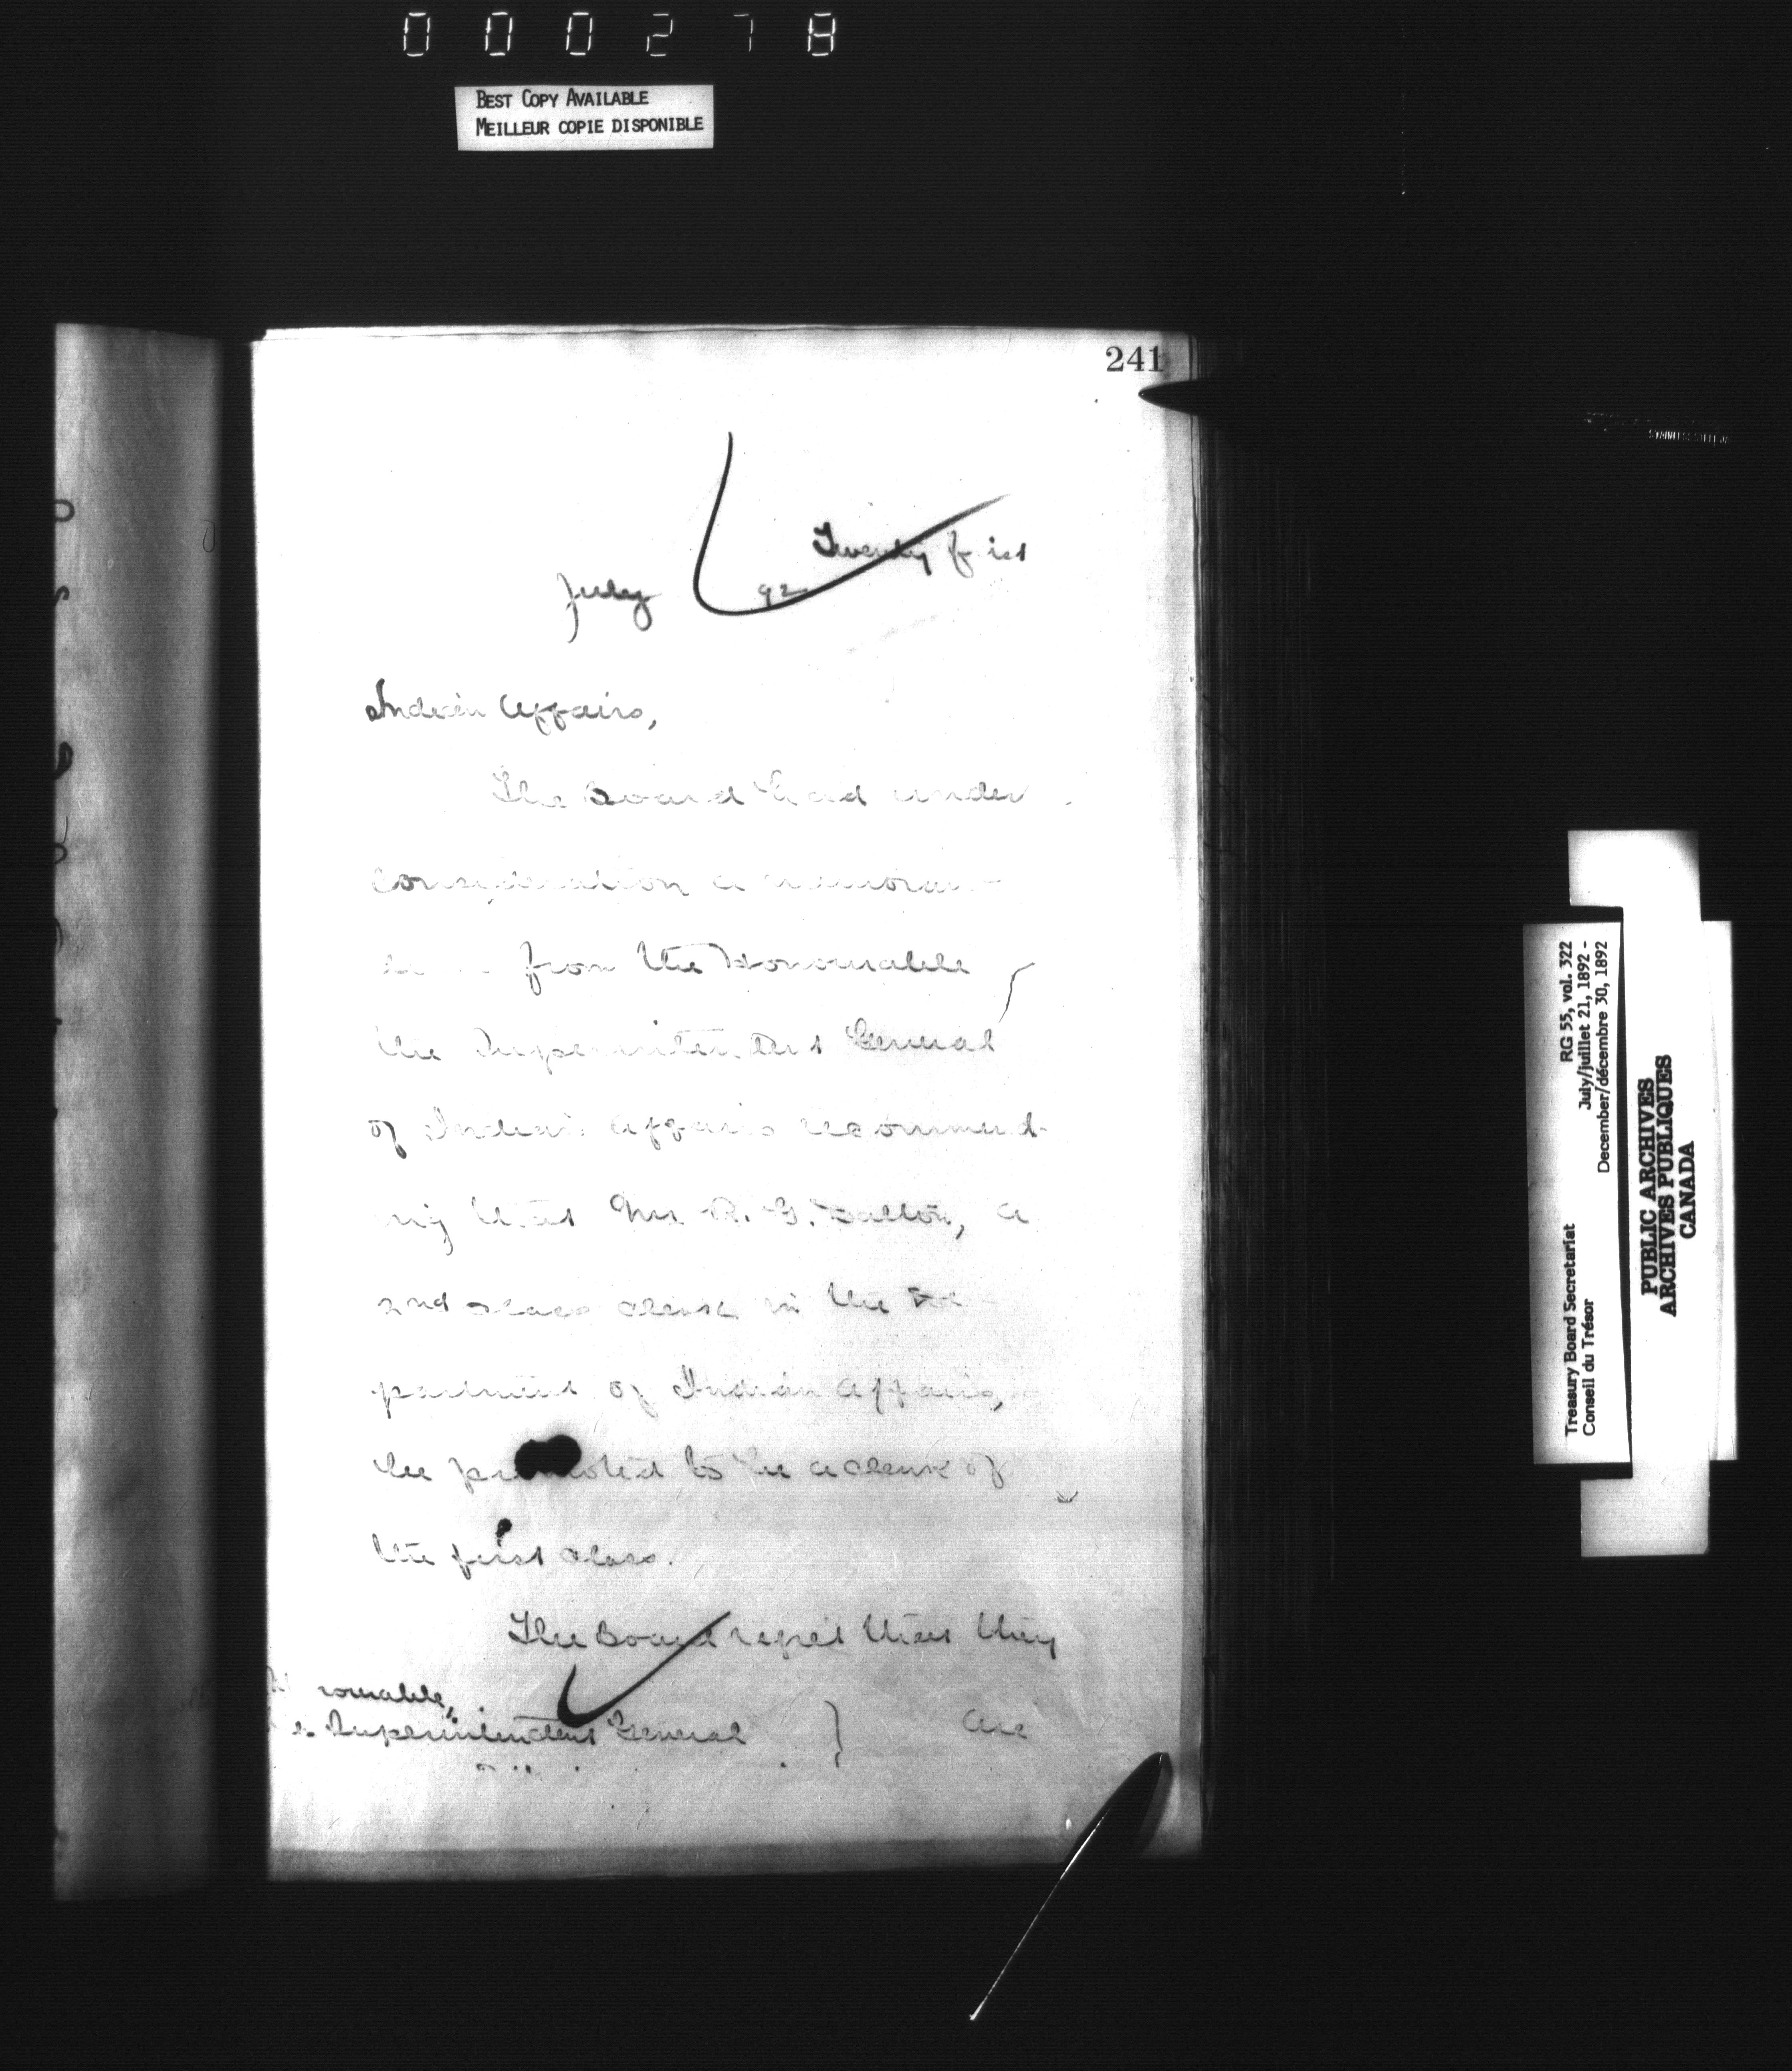 000278
BEST COPY AVAILABLE
MEILLEUR COPIE DISPONIBLE
241
Twenty first
July 92
Indian Affairs,
The Board had under
consideration a memoran-
from the Honourable
the Superintendent General
of Indian Affairs recommend-
ing that Mr. R. G. Dalton, a
2nd class clerk in the De-
partment of Indian Affairs,
be promoted to be a clerk of
the first class.
The Board regret that they
Superintendent General } are
Treasury Board Secretariat RG 55, vol. 322
Conseil du Trésor July/juillet 21, 1892 -
December/décembre 30, 1892
PUBLIC ARCHIVES
ARCHIVES PUBLIQUES
CANADA